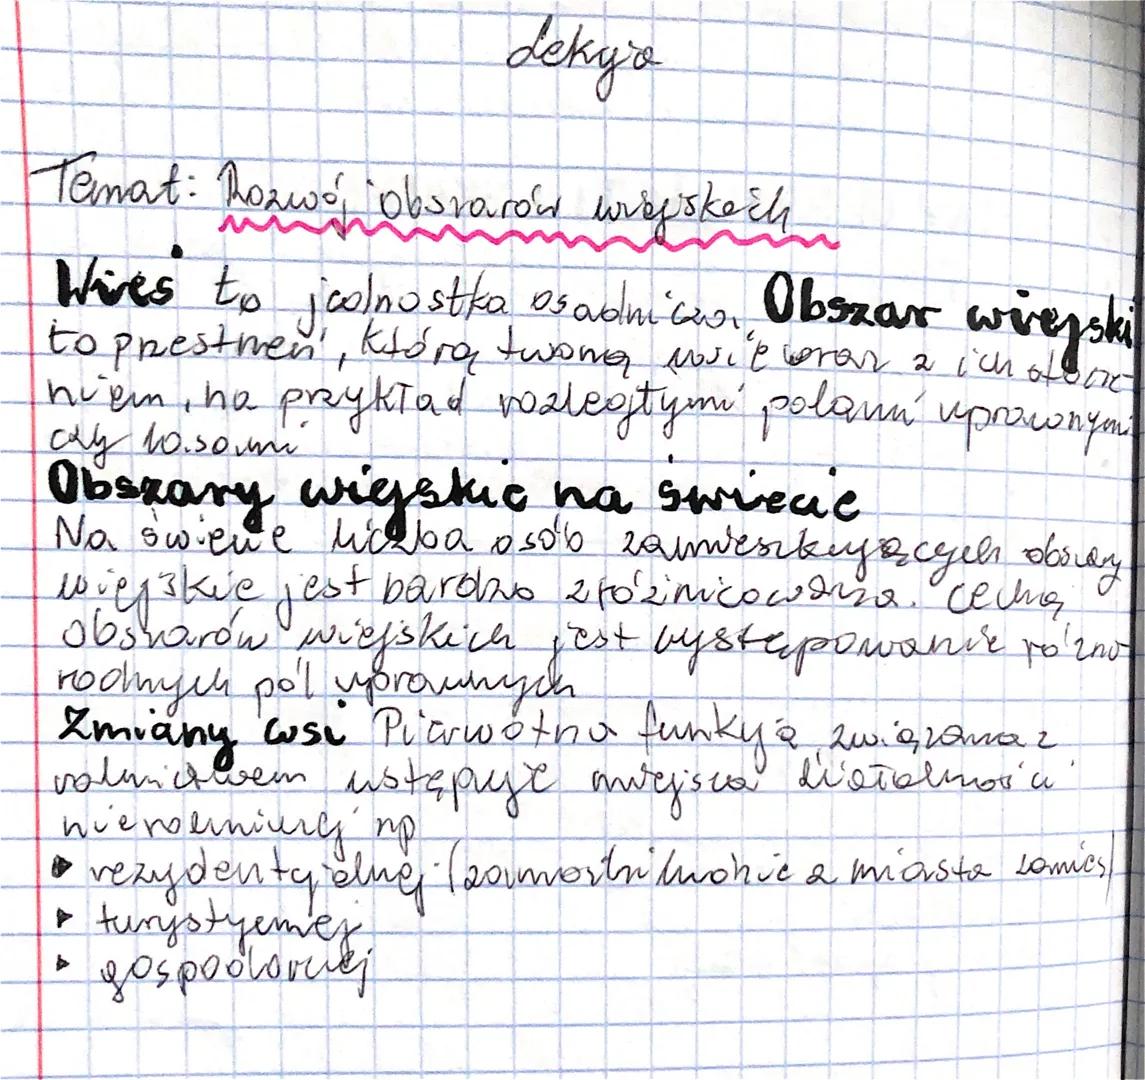 Lekcja
Temat: Rozwój obszarów wiejskich
Wieś to jednostka osadnicza. Obszar wiejski
to przestrzeń, którą tworzą wsie wraz z ich otocze-
niem, na przykład rozległymi polami uprawnymi
czy lasami
Obszary wiejskie na świecie
Na świecie liczba osób zamieszkujących obszary
wiejskie jest bardzo zróżnicowana. Cechą
obszarów wiejskich jest występowanie różno-
rodnych pól uprawnych
Zmiany wsi Pierwotna funkcja związana z
rolnictwem ustępuje miejsca działalności
nierolniczej np
▸ rezydencjalnej (zamożni ludzie z miasta)
▸ turystycznej
▸ gospodarczej